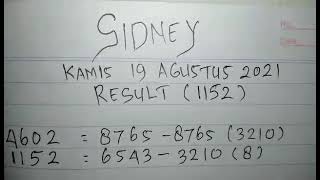 SIDNEY
KAMIS 19 AGUSTUS 2021
RESULT (1152)
4602 = 8765 - 8765 (3210)
1152 = 6543 - 3210 (8)